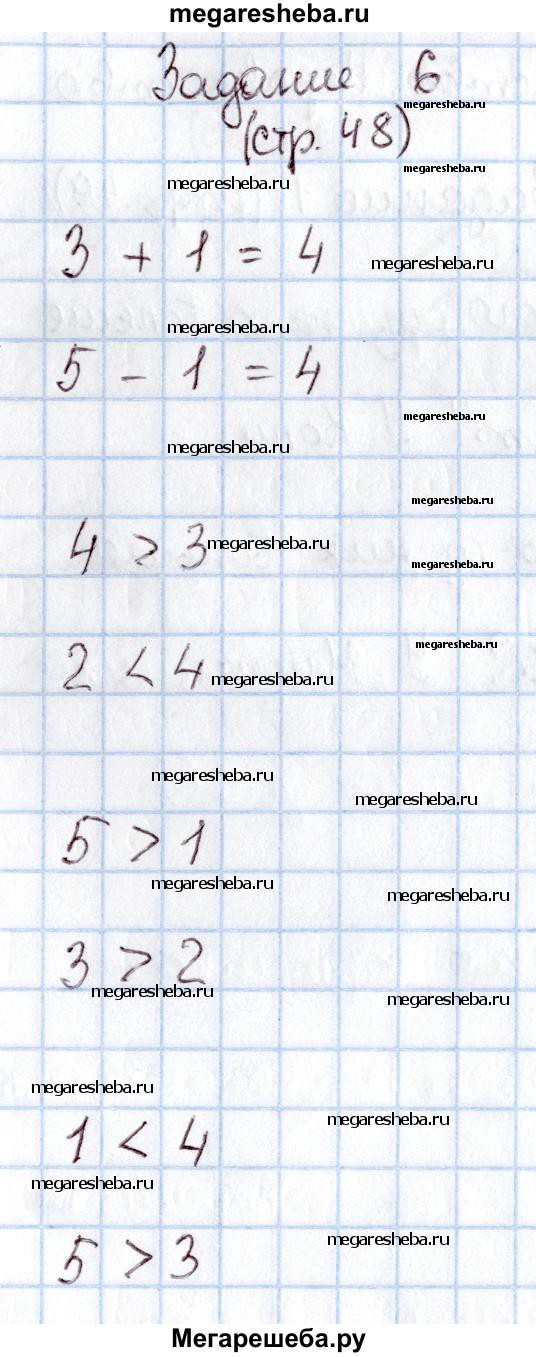 megaresheba.ru
Задание 6
megaresheba.ru
(стр. 48)
megaresheba.ru
megaresheba.ru
3 + 1 = 4
megaresheba.ru
megaresheba.ru
5 - 1 = 4
megaresheba.ru
megaresheba.ru
megaresheba.ru
4 > 3
megaresheba.ru
megaresheba.ru
megaresheba.ru
2 < 4
megaresheba.ru
megaresheba.ru
megaresheba.ru
5 > 1
megaresheba.ru
megaresheba.ru
3 > 2
megaresheba.ru
megaresheba.ru
megaresheba.ru
megaresheba.ru
1 < 4
megaresheba.ru
megaresheba.ru
5 > 3
Мегарешеба.ру